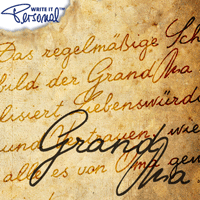 WRITE IT
Personal
Das regelmäßige Sch
bild der GrandMa
lisiert Liebenswürdi
und Vertrauen, wie
alle es von Oma gew
Grand
Ma